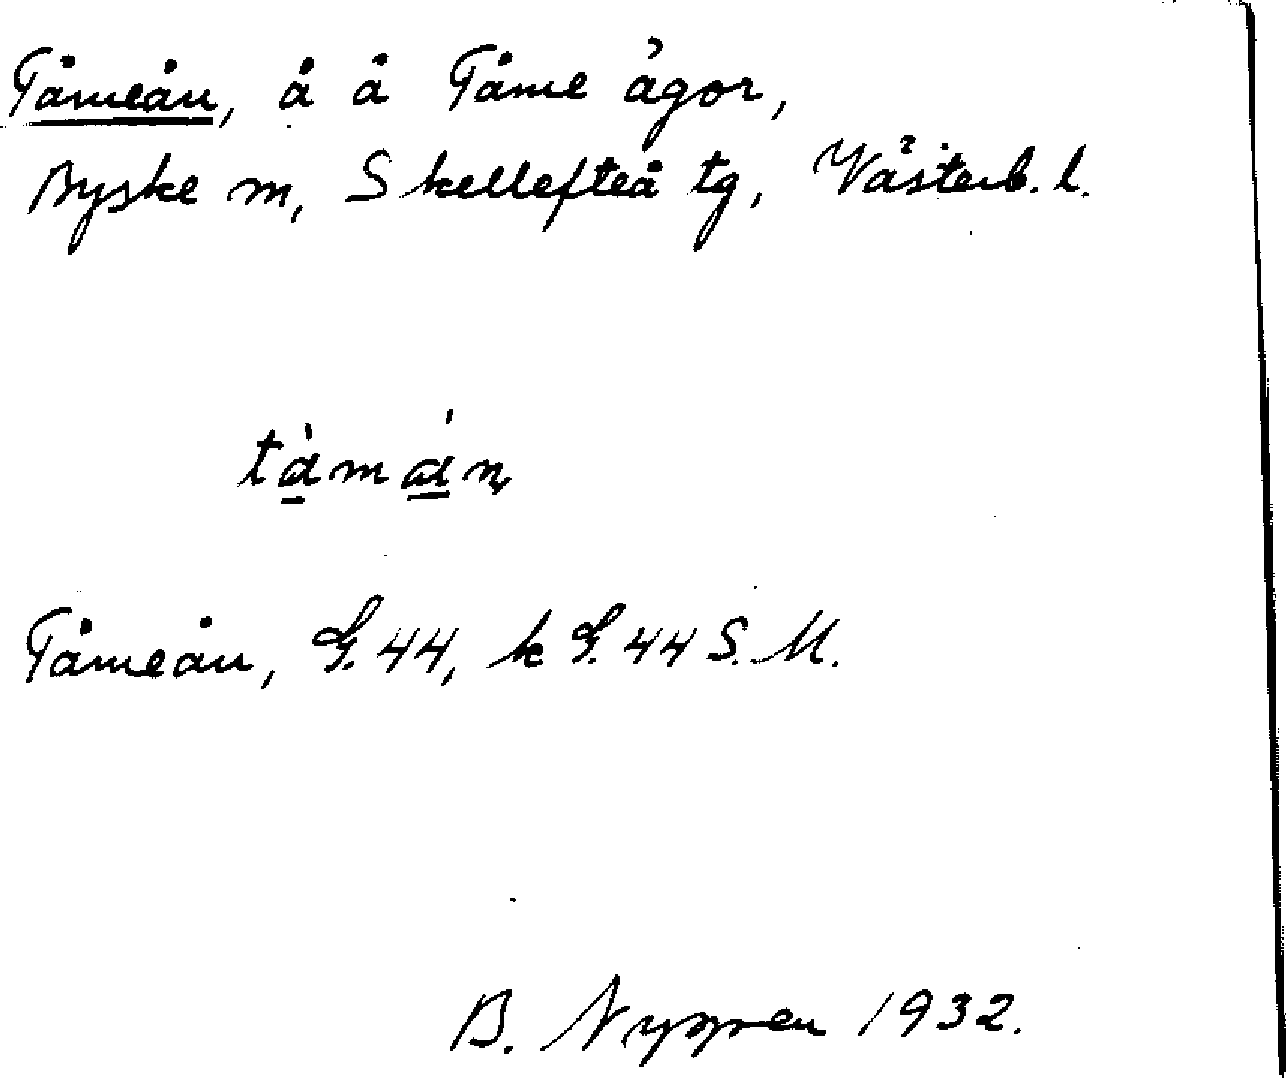 Tåmeån, å å Tåme ägor,
Byske sn, Skellefteå tg, Västerb. l.
tàmán
Tåmeån, G. 44, k G. 44 S. M.
B. 1932.